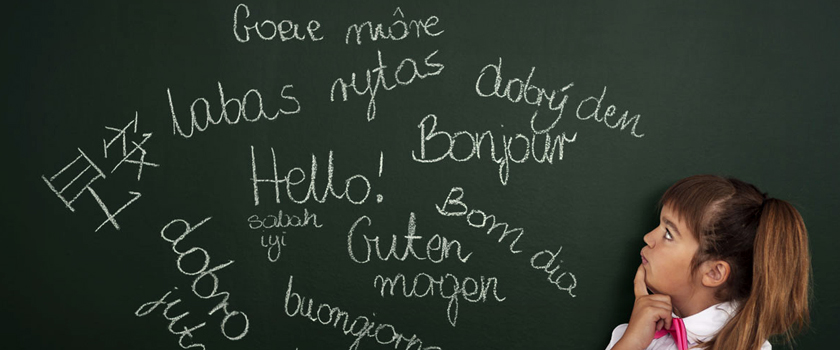 Goeie môre
labas rytas
Dobrý Den
Bonjour
早
Hello!
sabah
iyi
Guten
morgen
Bom dia
dobro
jutro
buongiorno